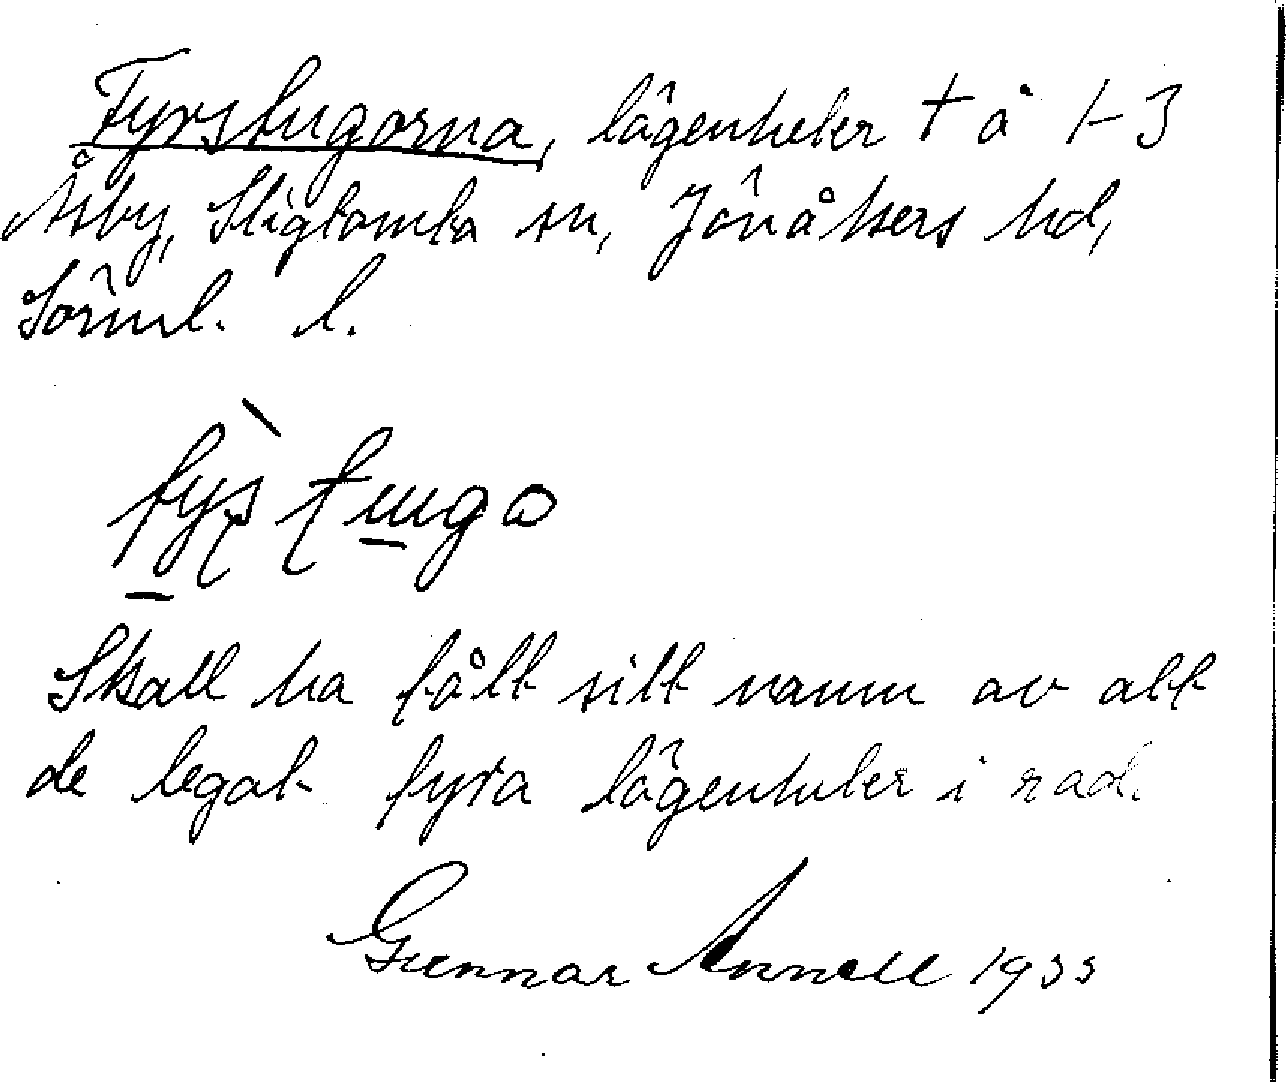 Fyrstugorna, lägenheter † å 1-3
Åsby, Stigtomta sn, Jönåkers hd,
Sörml. l.
Skall ha fått sitt namn av att
de legat fyra lägenheter i rad.
Gunnar Annell 1933